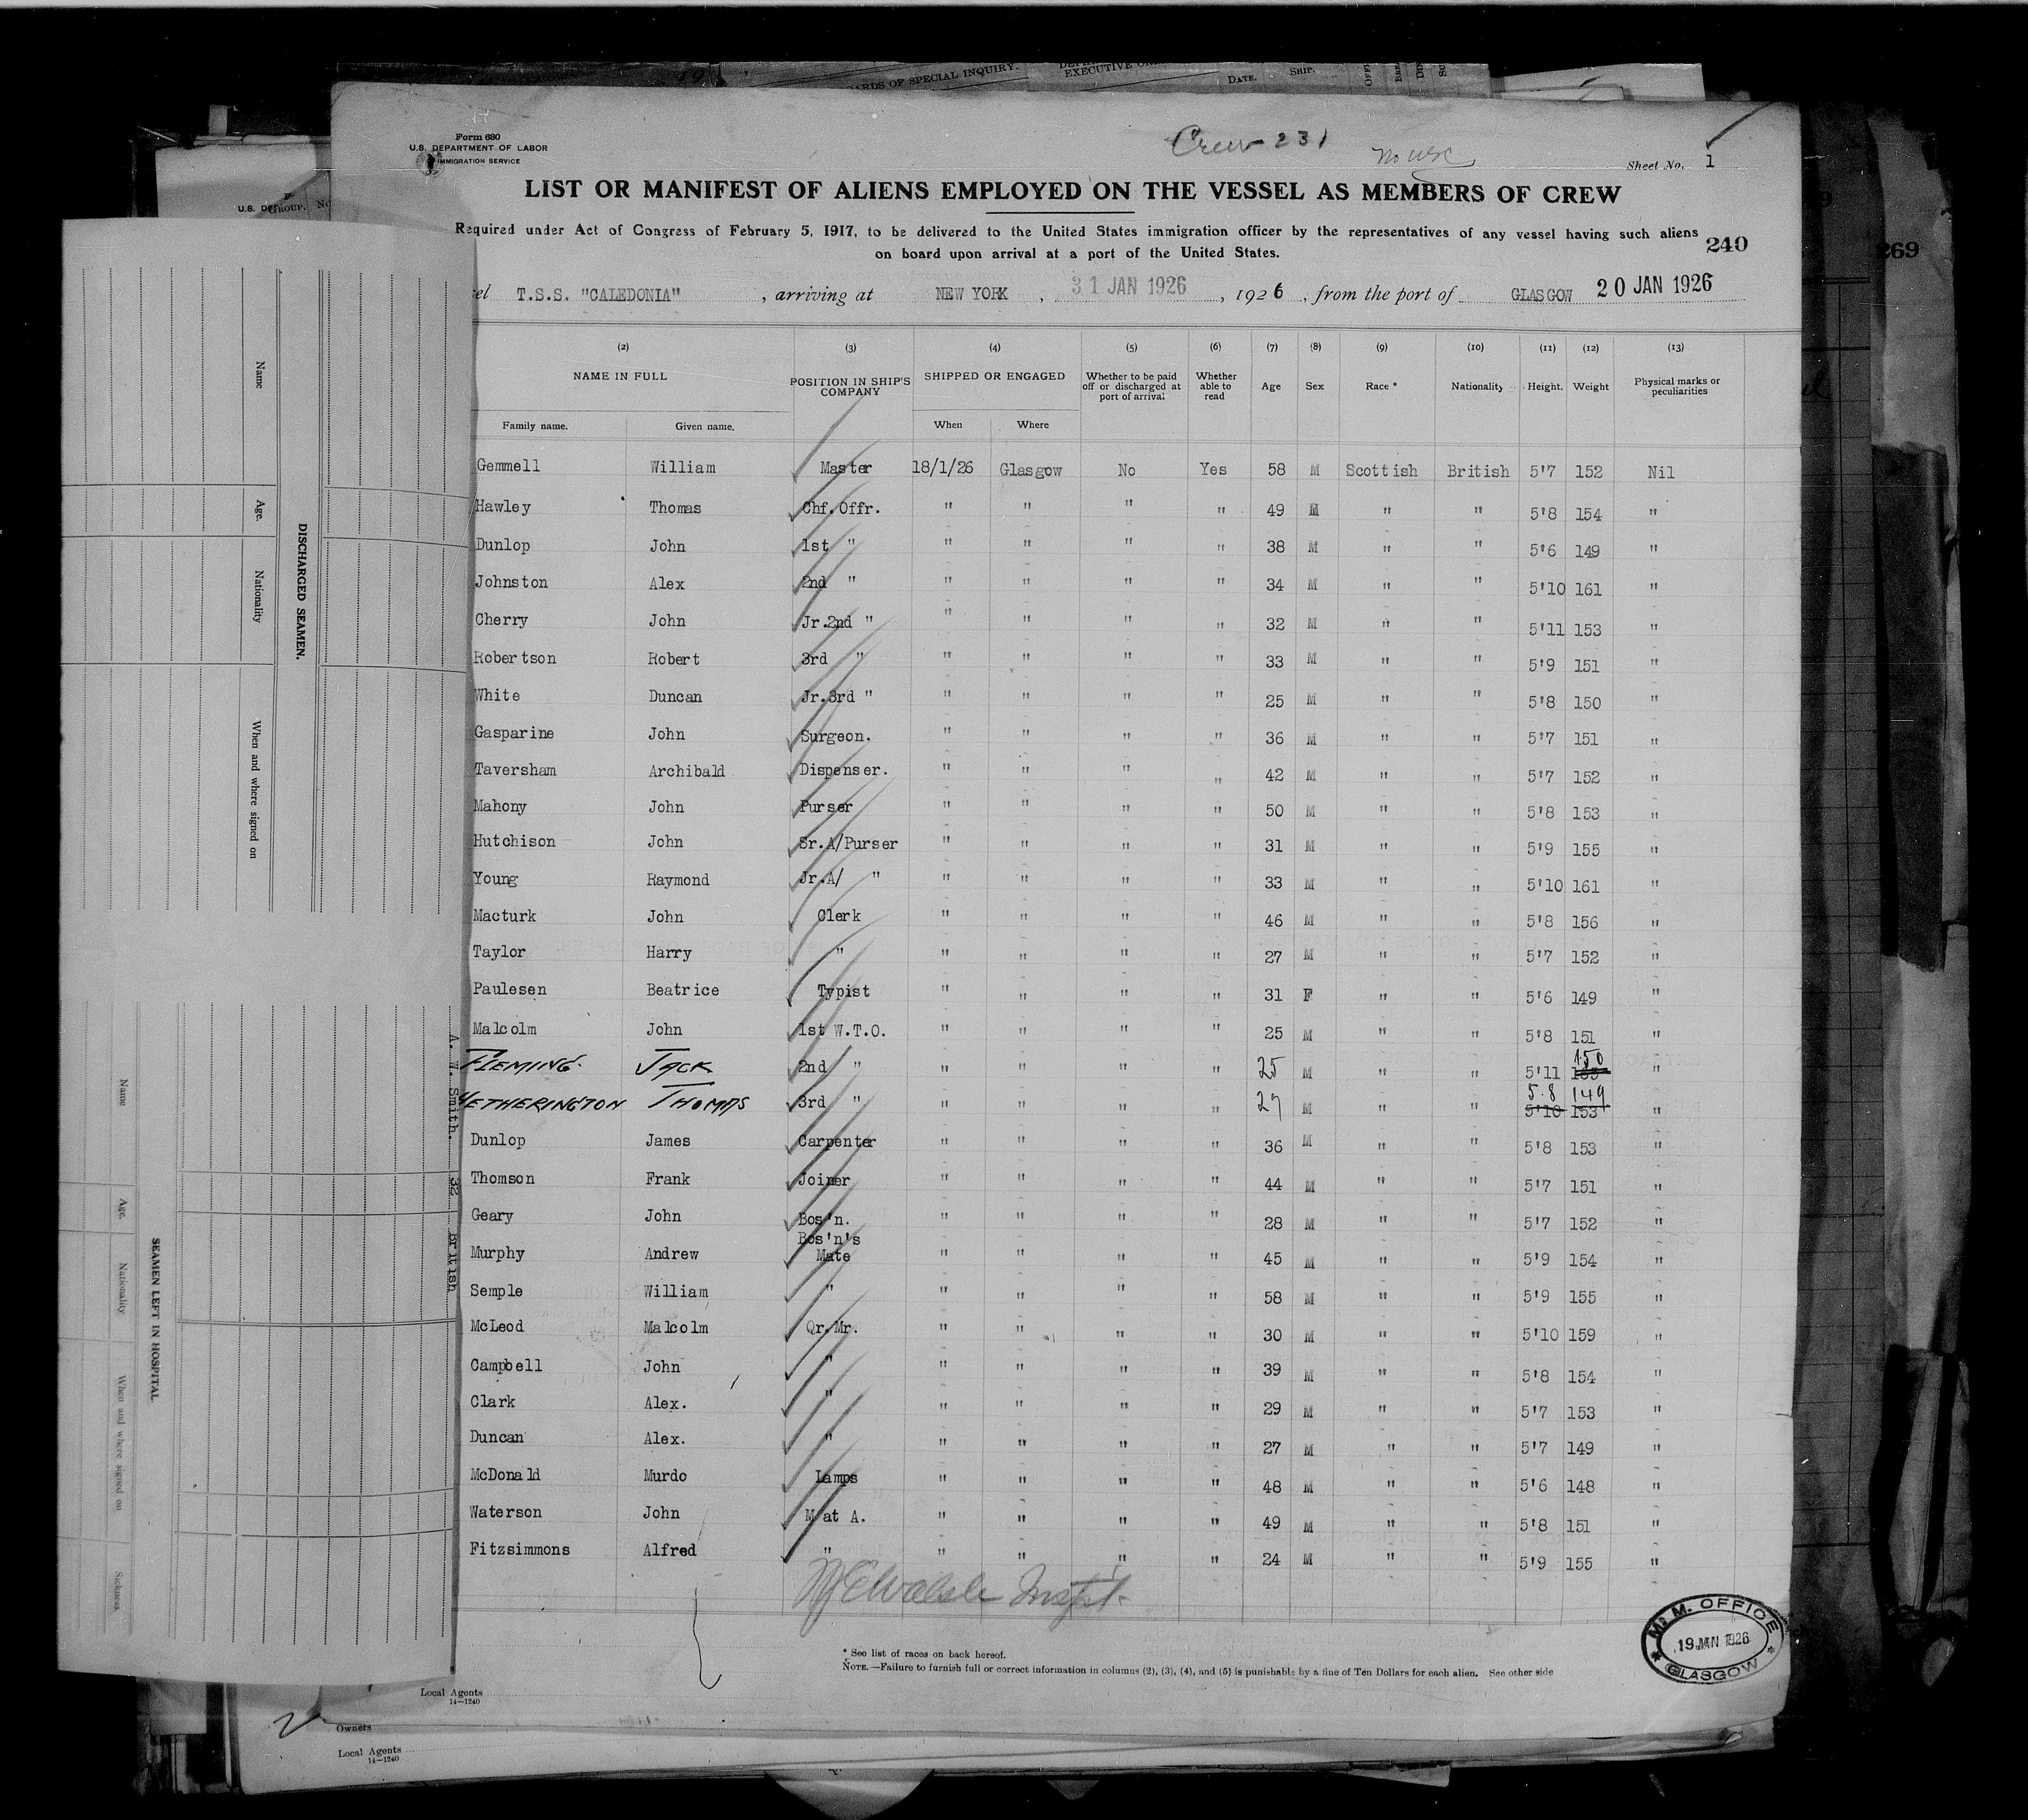 RDS OF SPECIAL INQUIRY.
EXECUTIVE
DATE.
SHIP.
Form 680
U.S. DEPARTMENT OF LABOR
IMMIGRATION SERVICE
Crew 231
Sheet No. 1
LIST OR MANIFEST OF ALIENS EMPLOYED ON THE VESSEL AS MEMBERS OF CREW
Required under Act of Congress of February 5, 1917, to be delivered to the United States immigration officer by the representatives of any vessel having such aliens
on board upon arrival at a port of the United States.
240
269
el T.S.S. "CALEDONIA" , arriving at NEW YORK , 31 JAN 1926 , 1926 , from the port of GLASGOW 20 JAN 1926
(2) (3) (4) (5) (6) (7) (8) (9) (10) (11) (12) (13)
NAME IN FULL POSITION IN SHIP'S COMPANY SHIPPED OR ENGAGED Whether to be paid off or discharged at port of arrival Whether able to read Age Sex Race * Nationality Height. Weight Physical marks or peculiarities
Family name. Given name. When Where
Gemmell William Master 18/1/26 Glasgow No Yes 58 M Scottish British 5'7 152 Nil
Hawley Thomas Chf.Offr. " " " " 49 M " " 5'8 154 "
Dunlop John 1st " " " " " 38 M " " 5'6 149 "
Johnston Alex 2nd " " " " " 34 M " " 5'10 161 "
Cherry John Jr.2nd " " " " " 32 M " " 5'11 153 "
Robertson Robert 3rd " " " " " 33 M " " 5'9 151 "
White Duncan Jr.3rd " " " " " 25 M " " 5'8 150 "
Gasparine John Surgeon. " " " " 36 M " " 5'7 151 "
Taversham Archibald Dispenser. " " " " 42 M " " 5'7 152 "
Mahony John Purser " " " " 50 M " " 5'8 153 "
Hutchison John Sr.A/Purser " " " " 31 M " " 5'9 155 "
Young Raymond Jr.A/ " " " " " 33 M " " 5'10 161 "
Macturk John Clerk " " " " 46 M " " 5'8 156 "
Taylor Harry " " " " " 27 M " " 5'7 152 "
Paulesen Beatrice Typist " " " " 31 F " " 5'6 149 "
Malcolm John 1st W.T.O. " " " " 25 M " " 5'8 151 "
FLEMING. JACK 2nd " " " " " 25 M " " 5'11 150 "
HETHERINGTON THOMAS 3rd " " " " " 27 M " " 5.8 149 "
5'10 153
Dunlop James Carpenter " " " " 36 M " " 5'8 153 "
Thomson Frank Joiner " " " " 44 M " " 5'7 151 "
Geary John Bos'n. " " " " 28 M " " 5'7 152 "
Murphy Andrew Bos'n's Mate " " " " 45 M " " 5'9 154 "
Semple William " " " " " 58 M " " 5'9 155 "
McLeod Malcolm Qr.Mr. " " " " 30 M " " 5'10 159 "
Campbell John " " " " " 39 M " " 5'8 154 "
Clark Alex. " " " " " 29 M " " 5'7 153 "
Duncan Alex. " " " " " 27 M " " 5'7 149 "
McDonald Murdo Lamps " " " " 48 M " " 5'6 148 "
Waterson John M at A. " " " " 49 M " " 5'8 151 "
Fitzsimmons Alfred " " " " " 24 M " " 5'9 155 "
* See list of races on back hereof.
NOTE.—Failure to furnish full or correct information in columns (2), (3), (4), and (5) is punishable by a fine of Ten Dollars for each alien. See other side
M. M. OFFICE
19 JAN 1926
GLASGOW
Local Agents
14—1240
Owners
Local Agents
14—1240
DISCHARGED SEAMEN.
Name
Age.
Nationality
When and where signed on
SEAMEN LEFT IN HOSPITAL
Name
Age.
Nationality
When and where signed on
Sickness
A. W. Smith. 32 British